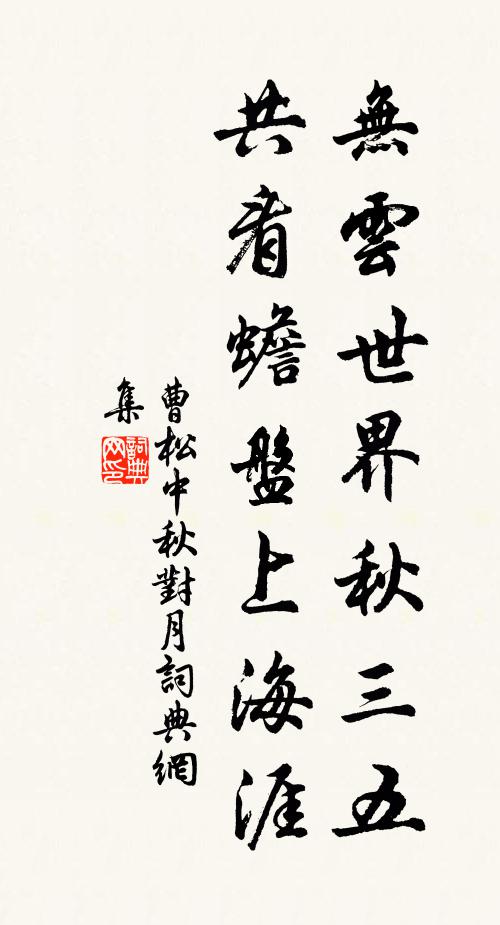 無雲世界秋三五
共看蟾盤上海涯
曹松中秋對月詞典網
集
詞典網印